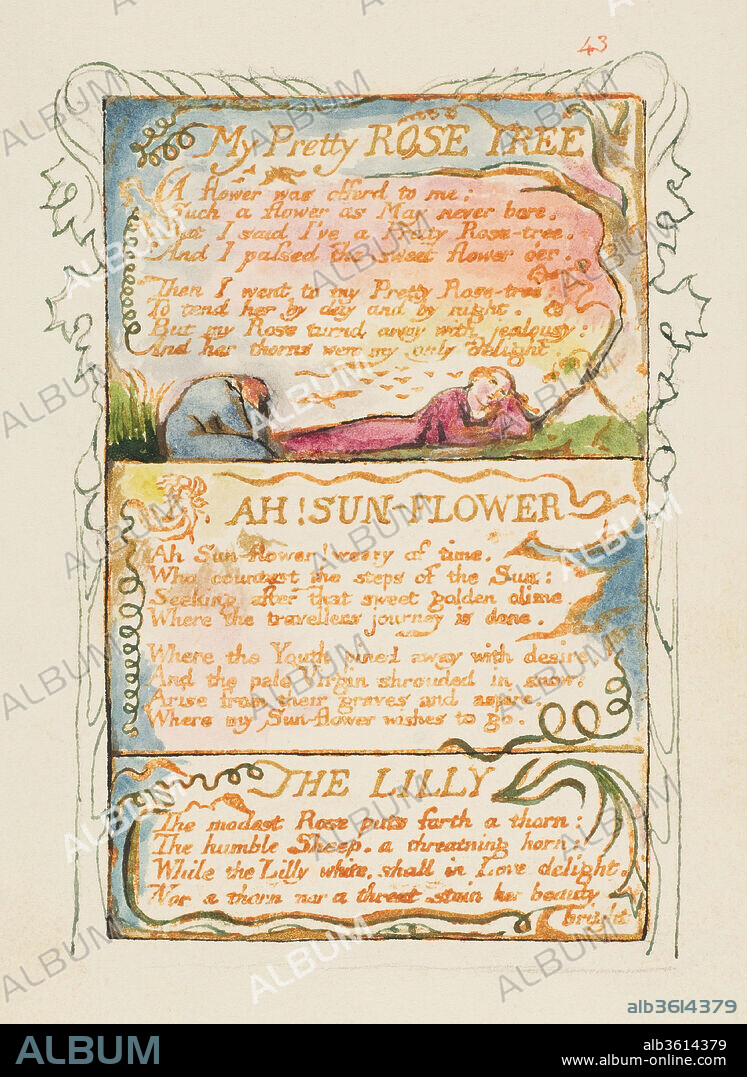 43
My Pretty ROSE TREE
A flower was offerd to me:
Such a flower as May never bore.
But I said I've a Pretty Rose-tree.
And I passed the sweet flower o'er.
Then I went to my Pretty Rose-tree:
To tend her by day and by night.
But my Rose turnd away with jealousy:
And her thorns were my only delight
AH! SUN-FLOWER
Ah Sun-flower! weary of time.
Who countest the steps of the Sun:
Seeking after that sweet golden clime
Where the travellers journey is done.
Where the Youth pined away with desire,
And the pale Virgin shrouded in snow:
Arise from their graves and aspire,
Where my Sun-flower wishes to go.
THE LILLY
The modest Rose puts forth a thorn:
The humble Sheep, a threatning horn:
While the Lilly white, shall in Love delight,
Nor a thorn nor a threat stain her beauty
bright
alb3614379
ALBUM
alb3614379
www.album-online.com